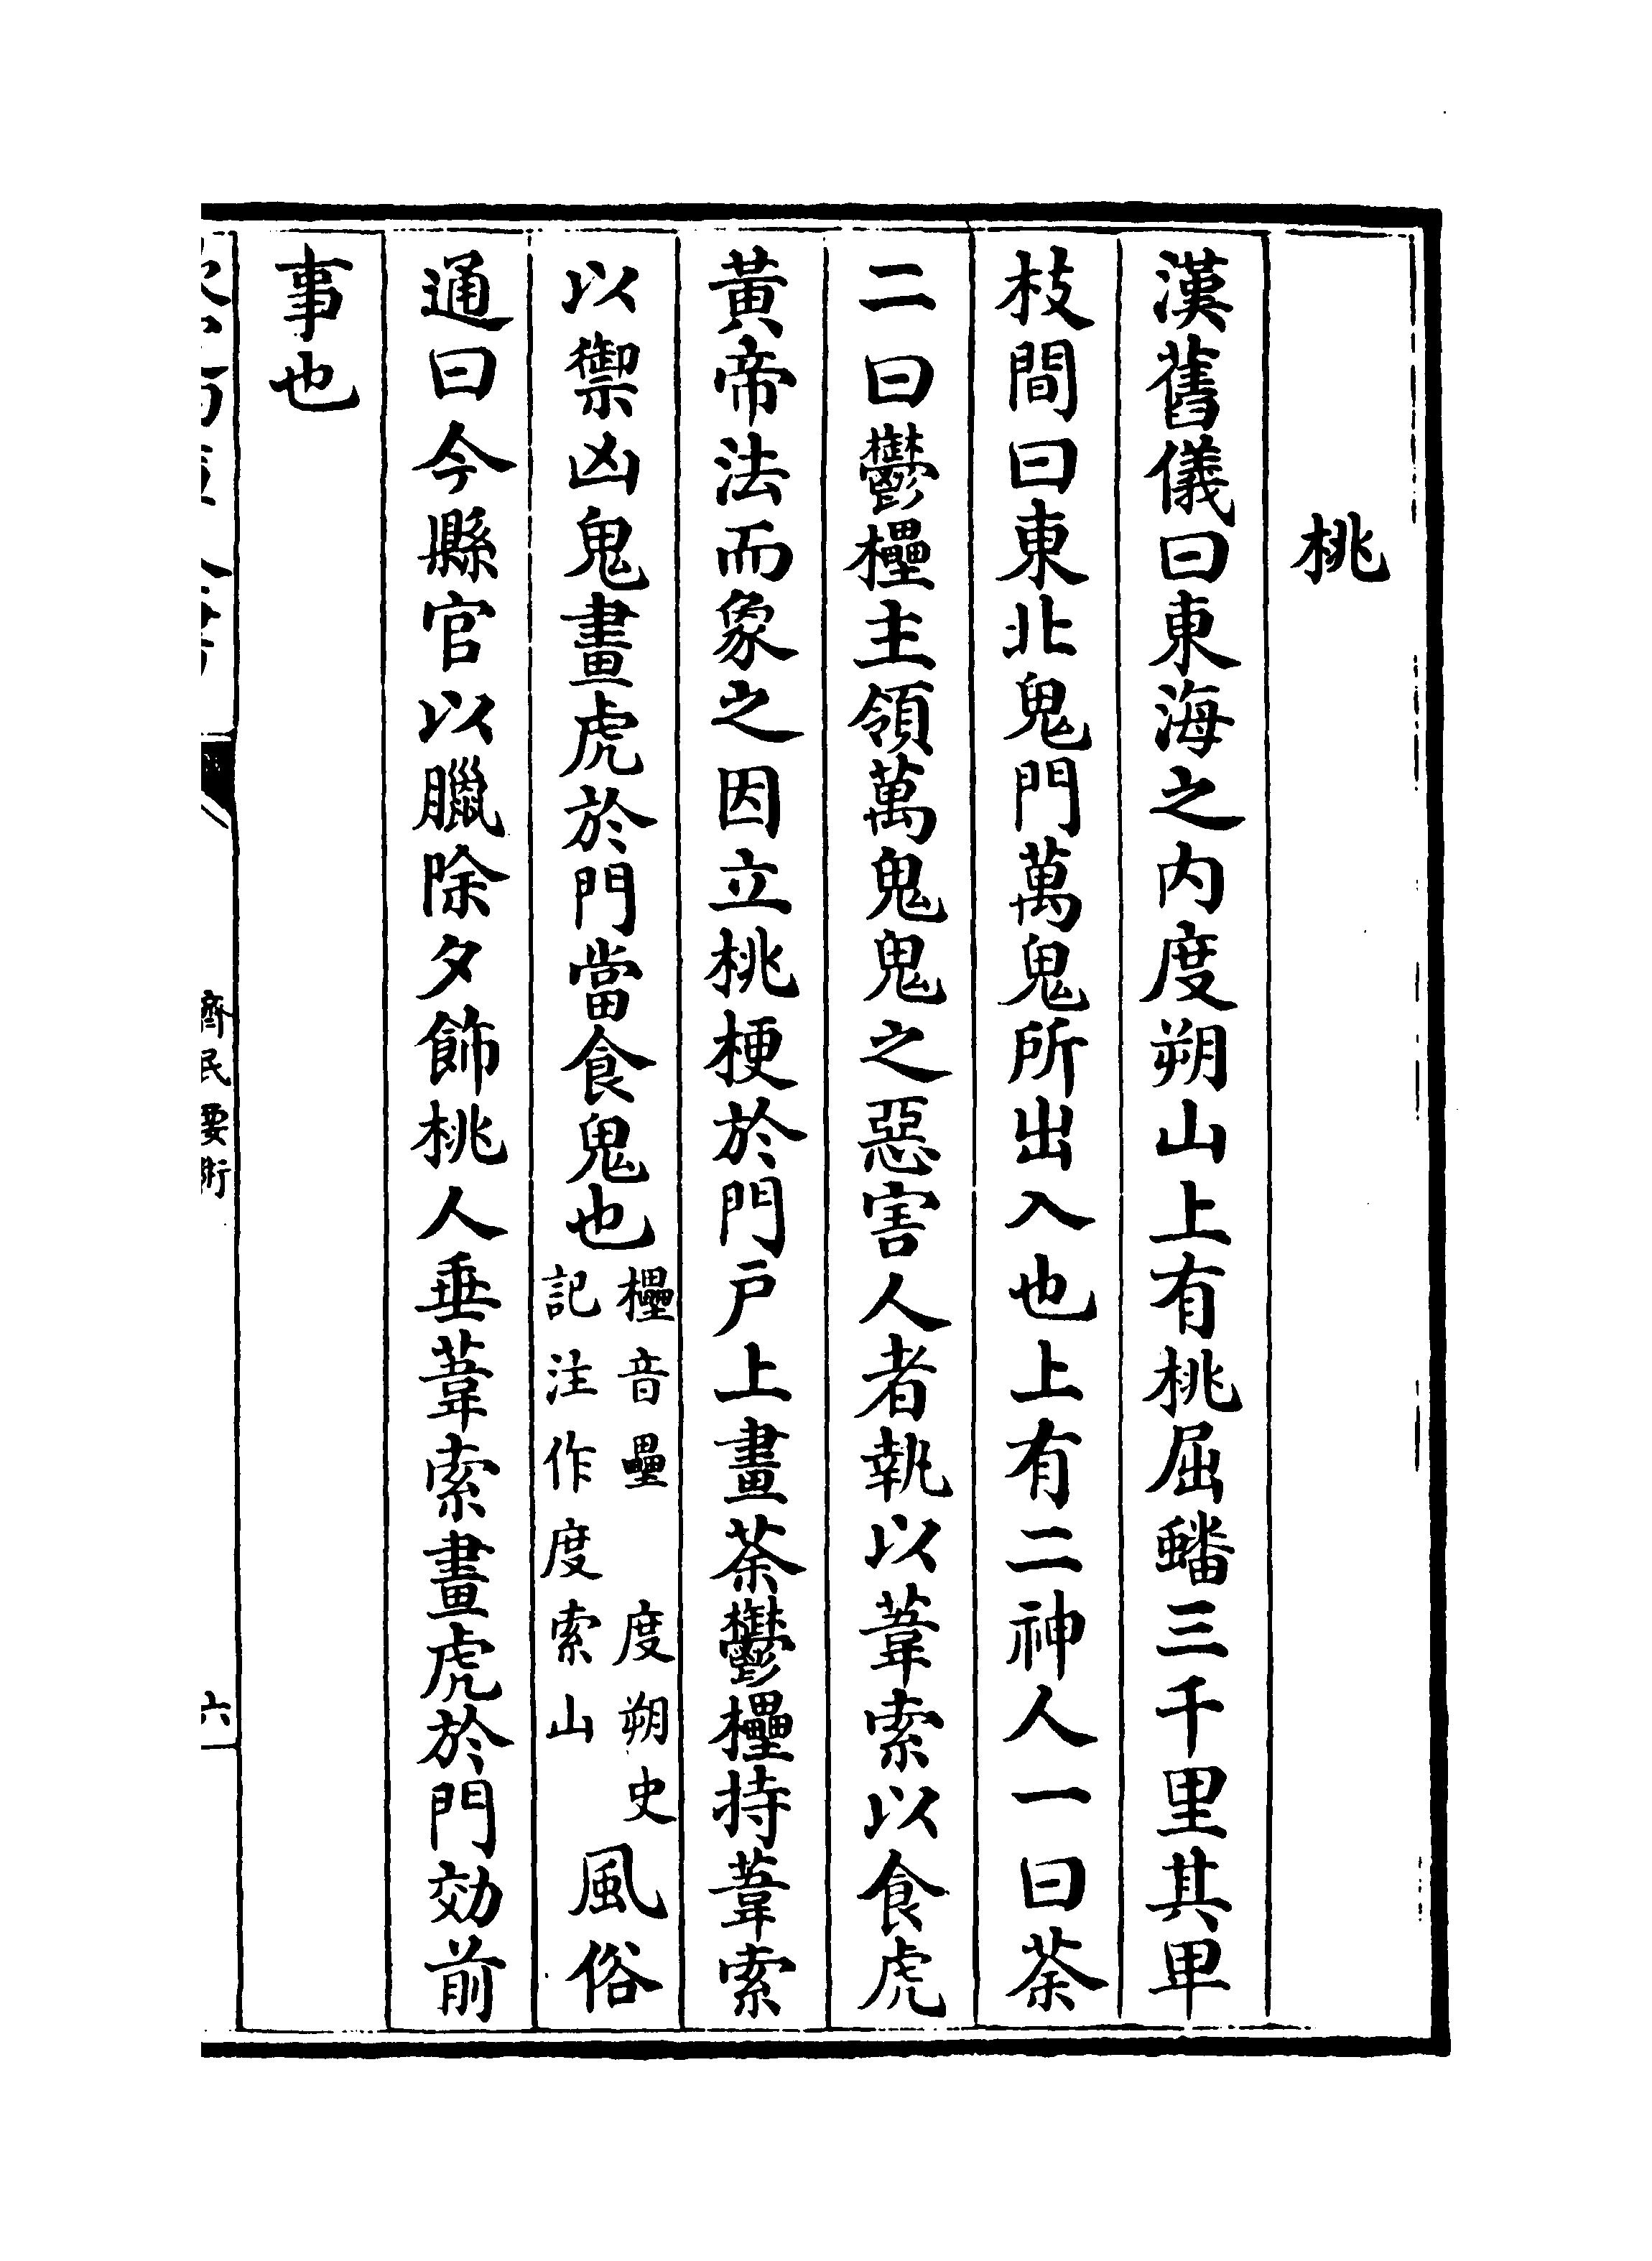 桃
漢舊儀曰東海之内度朔山上有桃屈蟠三千里其卑
枝間曰東北鬼門萬鬼所出入也上有二神人一曰荼
二曰鬱櫑主領萬鬼鬼之惡害人者執以葦索以食虎
黃帝法而象之因立桃梗於門戸上畫荼鬱櫑持葦索
以禦凶鬼畫虎於門當食鬼也
櫑音壘　度朔史
記注作度索山
風俗
通曰今縣官以臘除夕飾桃人垂葦索畫虎於門効前
事也
齊民要術
六